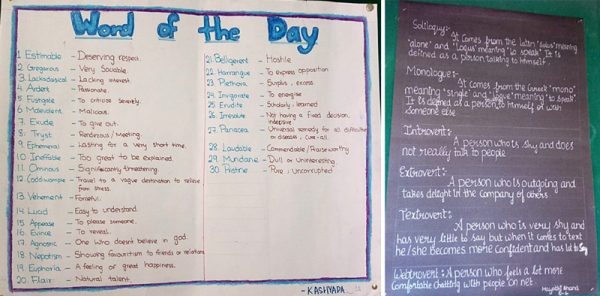 Word of the Day
1 Estimable - Deserving respect
2 Gregarious - Very Sociable.
3 Lackadaisical - Lacking interest
4 Ardent - Passionate.
5 Fustigate - To criticise severely.
6 Malevolent - Malicious.
7. Exude - To give out.
8. Tryst - Rendezvous / Meeting.
9 Ephemeral - Lasting for a very short time.
10 Ineffable - Too great to be explained.
11 Ominous - Significantly threatening.
12 Coddiwomple - Travel to a vague destination to relieve
from stress.
13 Vehement - Forceful.
14 Lucid - Easy to understand.
15 Appease - To please someone.
16 Evince - To reveal.
17 Agnostic - One who doesn't believe in god.
18 Nepotism - Showing favouritism to friends or relations
19 Euphoria - A feeling of great happiness.
20 Flair - Natural talent.
21. Belligerent - Hostile
22 Harrangue - To express opposition
23 Plethora - Surplus, excess
24 Invigorate - To energise
25 Erudite - Scholarly, learned
26 Irresolute - Not having a fixed decision,
27 Panacea - Universal remedy for all difficulties
or diseases, cure-all.
28 Laudable - Commendable / Praiseworthy
29. Mundane - Dull or Uninteresting
30 Pristine - Pure, uncorrupted
- KASHYAPA
Soliloquy:-
It Comes from the Latin "solus" meaning
"alone" and "Loqus" meaning "to speak". It is
defined as a person talking to himself.
Monologue:-
It Comes from the Greek "mono"
meaning "single" and "logue" meaning "to speak"
It is defined as a person to himself or with
someone else
Introvert:-
A person who is shy and does
not really talk to people
Extrovert:-
A person who is outgoing and
takes delight in the company of others
Textrovert:-
A person who is very shy and
has very little to say but when it comes to text
he/she Becomes more Confident and has lot to Say
Webtrovert:- A person who feels a lot more
Comfortable Chatting with people on net
Anand